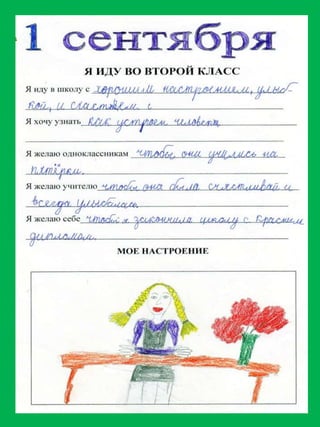 1 сентября
Я ИДУ ВО ВТОРОЙ КЛАСС
Я иду в школу с хорошим настроением, улыб-
кой, и счастьем. с
Я хочу узнать как устроен человек
Я желаю одноклассникам чтобы они учились на
пятёрки.
Я желаю учителю чтобы она была счастливай и
всегда улыбалась.
Я желаю себе чтобы я закончила школу с красным
дипломом.
МОЕ НАСТРОЕНИЕ